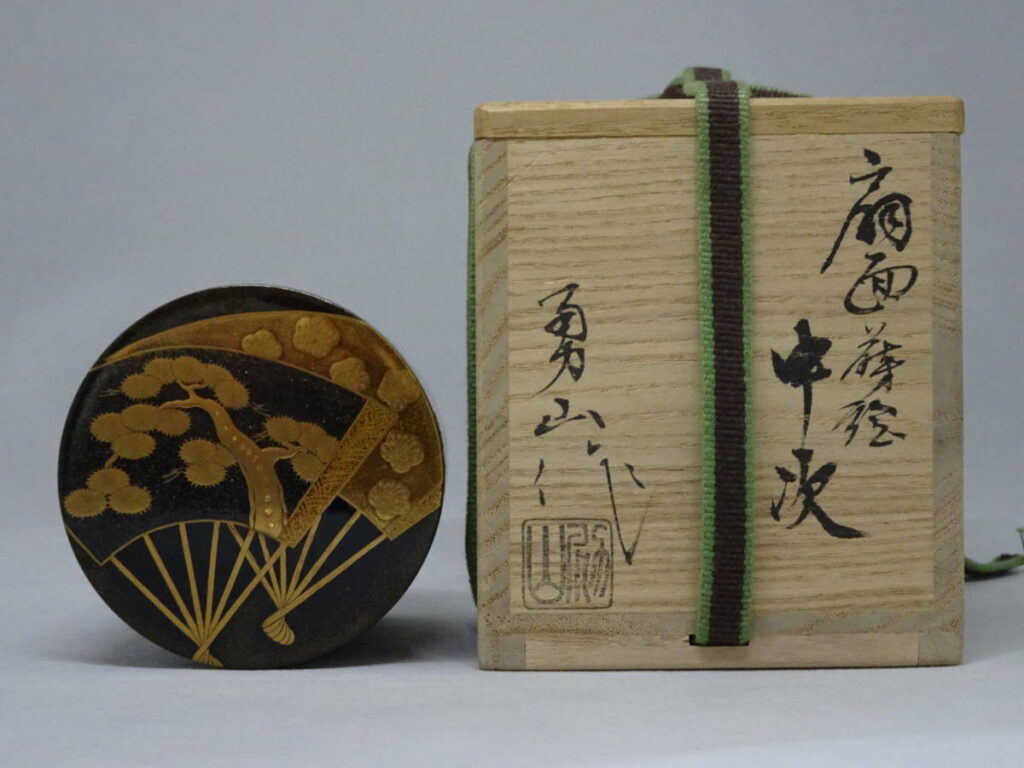 扇面蒔絵
中次
勇山作